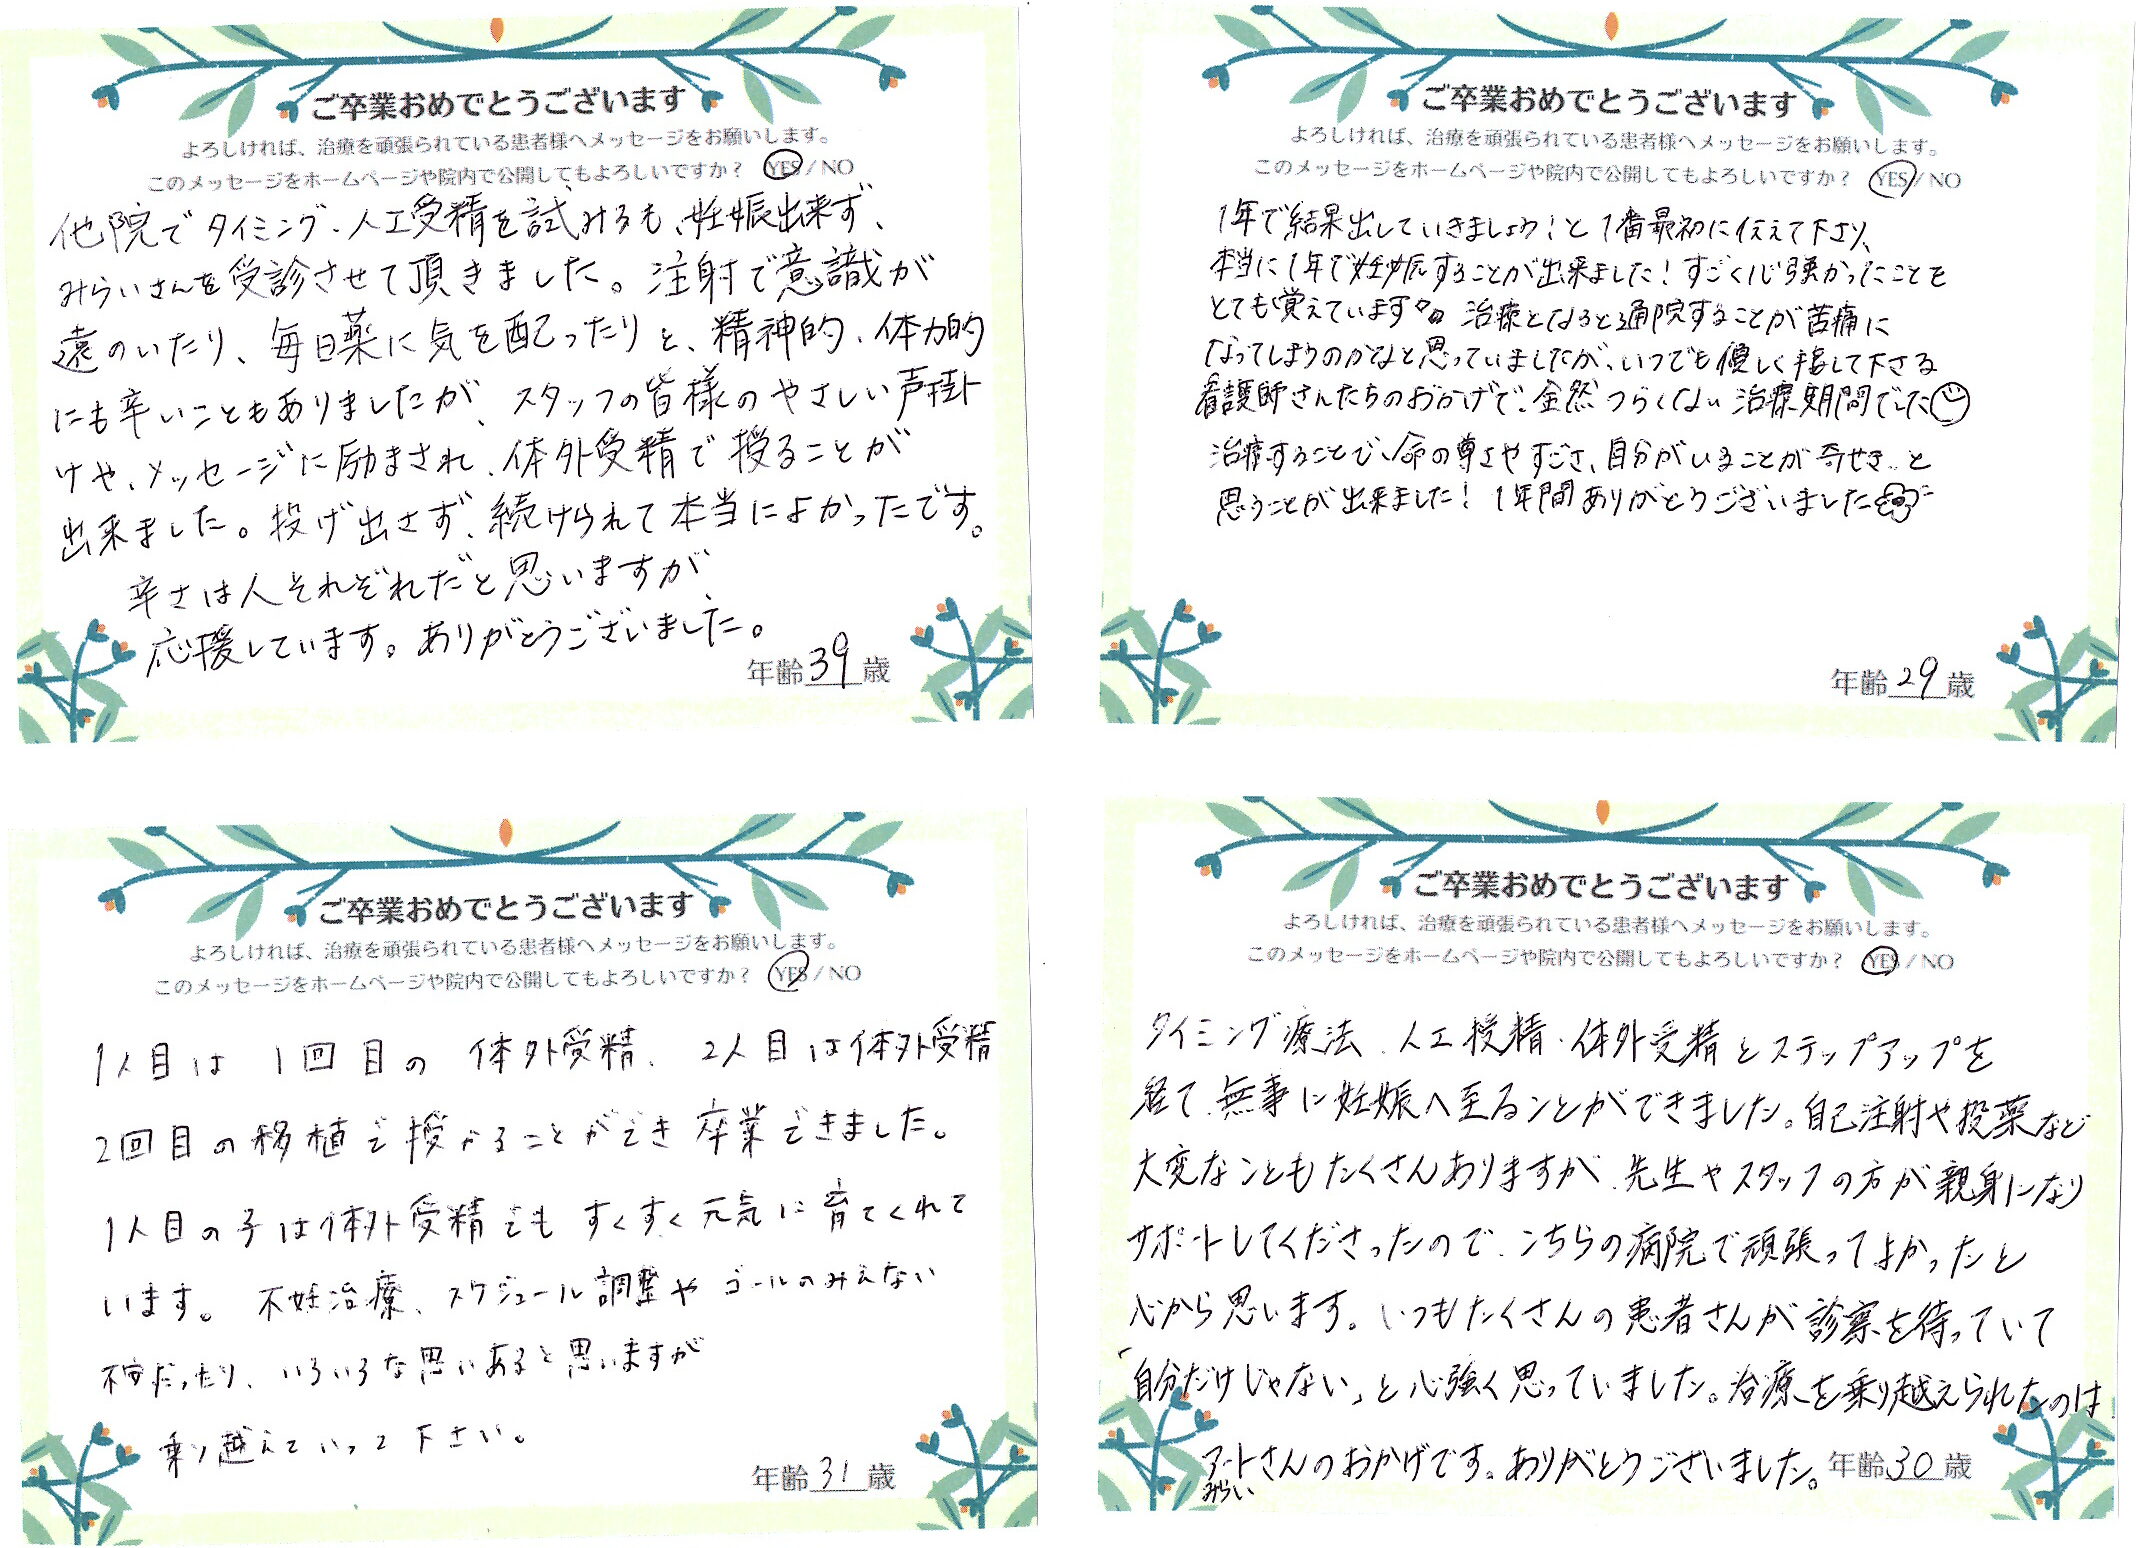 ご卒業おめでとうございます
よろしければ、治療を頑張られている患者様へメッセージをお願いします。
このメッセージをホームページや院内で公開してもよろしいですか？ YES / NO
他院でタイミング、人工受精を試みるも、妊娠出来ず、
みらいさんを受診させて頂きました。注射で意識が
遠のいたり、毎日薬に気を配ったりと、精神的、体力的
にも辛いこともありましたが、スタッフの皆様のやさしい声掛
けや、メッセージに励まされ、体外受精で授ることが
出来ました。投げ出さず、続けられて本当によかったです。
辛さは人それぞれだと思いますが、
応援しています。ありがとうございました。
年齢 39 歳
ご卒業おめでとうございます
よろしければ、治療を頑張られている患者様へメッセージをお願いします。
このメッセージをホームページや院内で公開してもよろしいですか？ YES / NO
1年で結果出していきましょう！と1番最初に伝えて下さり、
本当に1年で妊娠することが出来ました！すごく心強かったことを
とても覚えています。治療となると通院することが苦痛に
なってしまうのかなと思っていましたが、いつでも優しく接して下さる
看護師さんたちのおかげで、全然つらくない治療期間でした☺
治療することで、命の尊さやすごさ、自分がいることが奇せき…と
思うことが出来ました！1年間ありがとうございました
年齢 29 歳
ご卒業おめでとうございます
よろしければ、治療を頑張られている患者様へメッセージをお願いします。
このメッセージをホームページや院内で公開してもよろしいですか？ YES / NO
1人目は 1回目の 体外受精、2人目は体外受精
2回目の移植で授かることができ卒業できました。
1人目の子は体外受精でもすくすく元気に育てくれて
います。不妊治療、スケジュール調整やゴールのみえない
不安だったり、いろいろな思いあると思いますが
乗り越えていって下さい。
年齢 31 歳
ご卒業おめでとうございます
よろしければ、治療を頑張られている患者様へメッセージをお願いします。
このメッセージをホームページや院内で公開してもよろしいですか？ YES / NO
タイミング療法、人工授精、体外受精とステップアップを
経て、無事に妊娠へ至ることができました。自己注射や投薬など
大変なこともたくさんありますが、先生やスタッフの方が親身になり
サポートしてくださったので、こちらの病院で頑張ってよかったと
心から思います。いつもたくさんの患者さんが診察を待っていて
「自分だけじゃない」と心強く思っていました。治療を乗り越えられたのは
アートさんのおかげです。ありがとうございました。
みらい
年齢 30 歳